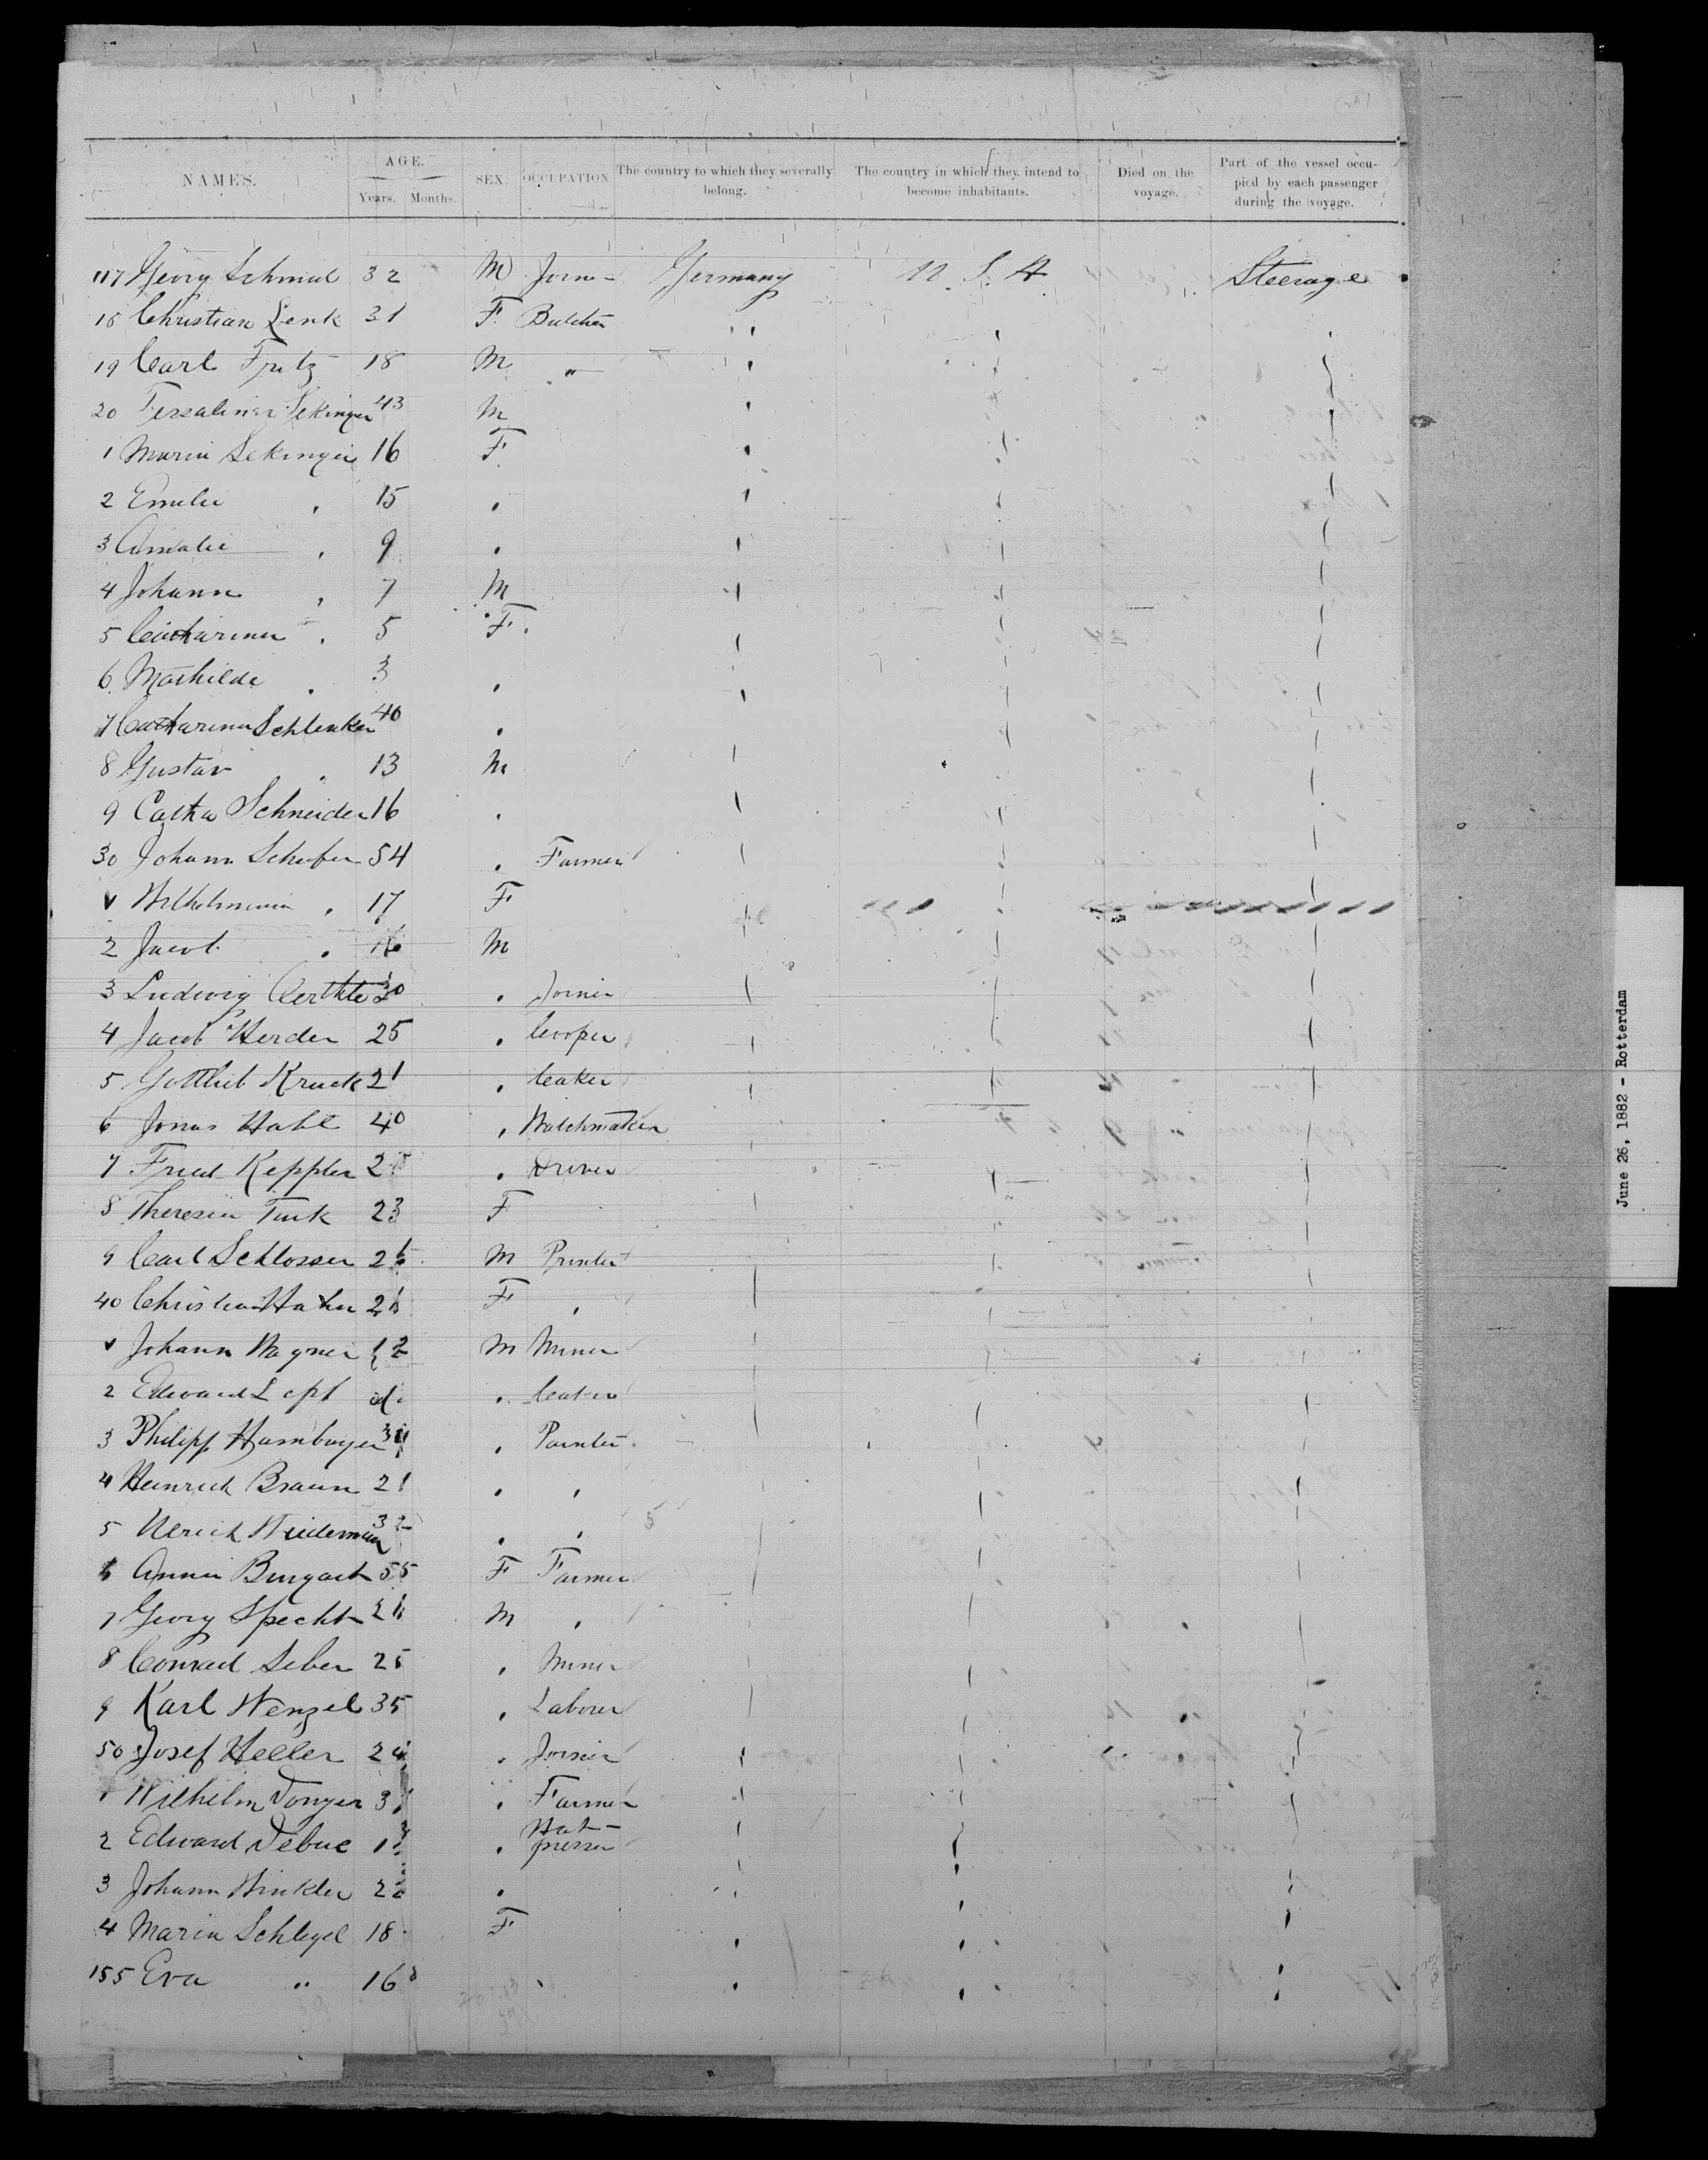 NAMES. AGE. Years. Months. SEX. OCCUPATION The country to which they severally belong. The country in which they intend to become inhabitants. Died on the voyage. Part of the vessel occupied by each passenger during the voyage.
117 Georg Schmid 32 M Joiner Germany U. S. A Steerage
18 Christian Lenk 31 F Butcher
19 Carl Fritz 18 M "
20 Sekinger 43 M
1 Maria Sekinger 16 F
2 Emilie 15
3 Amalie 9
4 Johann 7 M
5 Catharina 5 F
6 Mathilde 3
7 Catharina Schlenker 40
8 Gustav 13 M
9 Catha Schneider 16
30 Johann Schafer 54 Farmer
Wilhelmina 17 F
2 Jacob 16 M
3 Ludwig Oerthle 30 Joiner
4 Jacob Herder 25 Cooper
5 Gottlieb Kruck 21
6 Jonas Hahl 40 Watchmaker
7 Fried Keppler Driver
8 Theresia Turk 23 F
9 Carl Schlosser M Printer
40 Christian Hahn F
Johann Wagner M Miner
2 Edward
3 Philipp Hamburger Painter
4 Heinrich Braun 21
5 Ulrich Wiedeman 32
6 Anna Burgart 55 F Farmer
7 Georg Specht M
8 Conrad Leber 25 Miner
9 Karl Wenzel 35 Laborer
50 Josef Heller 24 Joiner
Wilhelm Donger Farmer
2 Edward Debue Hat-
presser
3 Johann Winkler
4 Maria Schlegel 18 F
155 Eva " 16
June 26, 1882 - Rotterdam